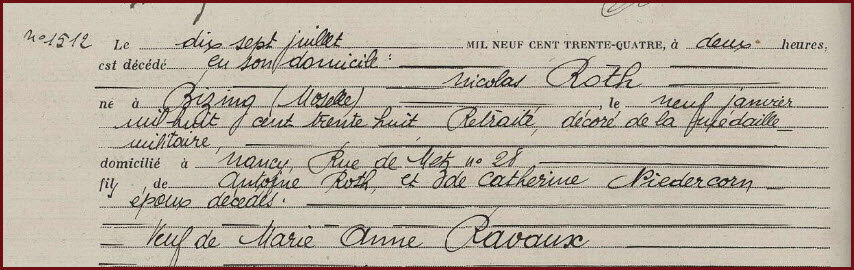 No 1512 Le dix sept juillet MIL NEUF CENT TRENTE-QUATRE, à deux heures,
est décédé en son domicile :
Nicolas Roth
né à Bizing (Moselle) le neuf janvier
mil huit cent trente huit Retraité, décoré de la médaille
militaire,
domicilié à Nancy, Rue de Metz no 28
fils de Antoine Roth, et de Catherine Niedercorn
époux décédés.
Veuf de Marie Anne Ravaux